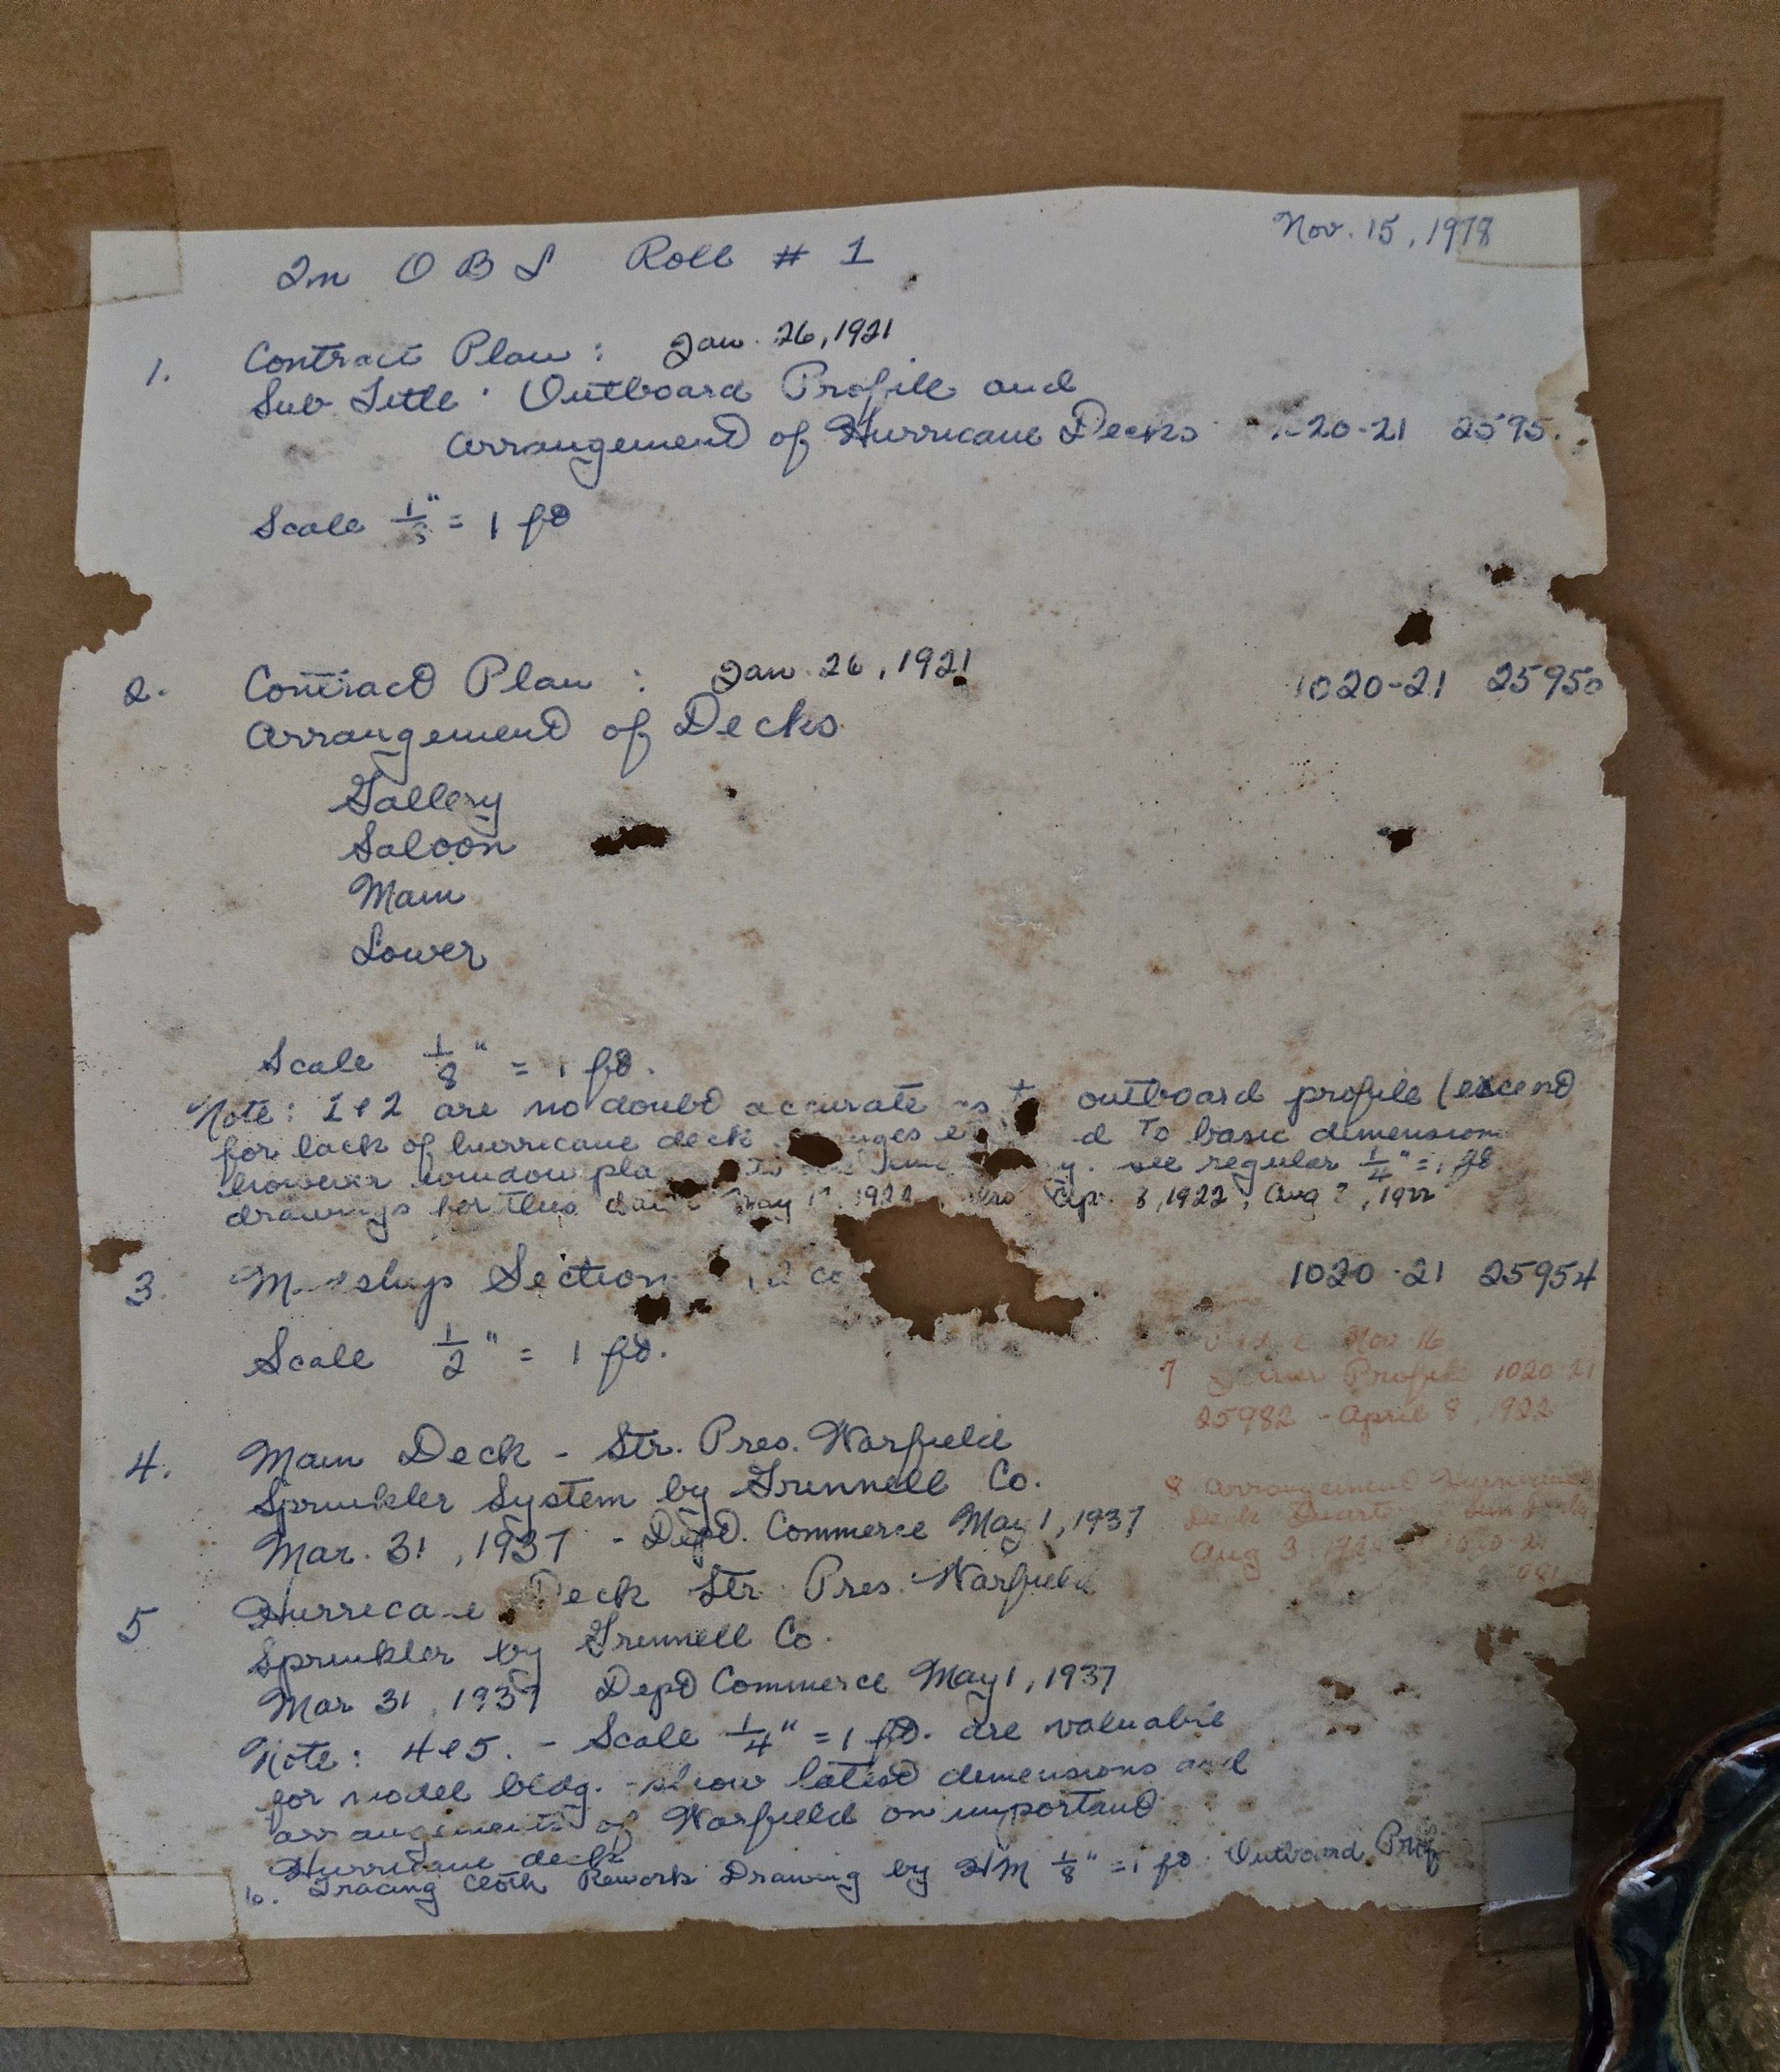 Nov. 15, 1978
In OBL Roll # 1
1. Contract Plan : Jan. 26, 1921
Sub Title · Outboard Profile and
Arrangement of Hurricane Decks 20-21 2595
Scale = 1 ft
2. Contract Plan : Jan 26, 1921 1020-21 25950
Arrangement of Decks
Gallery
Saloon
Main
Lower
Scale 1/8" = 1 ft.
Note: 1 & 2 are no doubt accurate as to outboard profile (except
for lack of hurricane deck to basic dimension
however window see regular 1/4" = 1 ft
drawings for this May 1922, Ap. 3, 1922, Aug 1922
3. Section 1020-21 25954
Scale 1/2" = 1 ft.
Nov 16
7 Profile 1020 21
25982 - April 8, 1922
4. Main Deck - Str. Pres. Warfield
Sprinkler System by Grinnell Co.
Mar. 31, 1937 - Dept. Commerce May 1, 1937
8 Arrangement Hurricane
Deck
Aug 3 1020-21
5 Hurricane Deck Str. Pres. Warfield
Sprinkler by Grinnell Co.
Mar 31, 1937 Dept Commerce May 1, 1937
Note: 4 & 5. - Scale 1/4" = 1 ft. are valuable
for model bldg. - show latest dimensions and
arrangements of Warfield on important
Hurricane deck
6. Tracing Cloth Rework Drawing by HM 1/8" = 1 ft. Outboard Prof